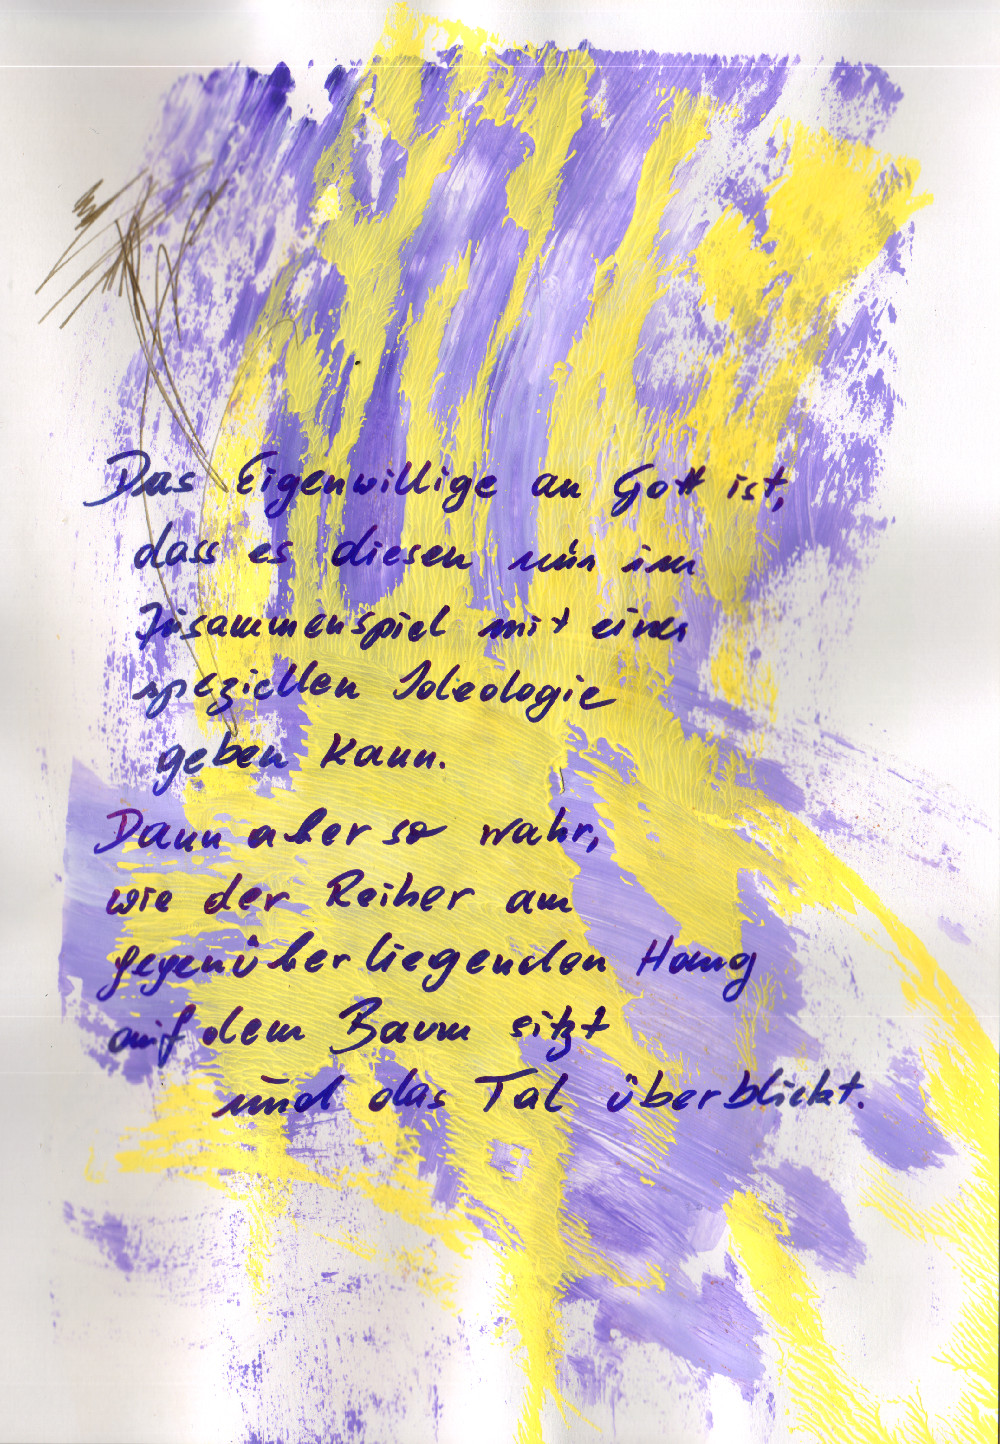 Das Eigenwillige an Gott ist,
dass es diesen nur im
Zusammenspiel mit einer
speziellen Ideologie
geben kann.
Dann aber so wahr,
wie der Reiher am
gegenüberliegenden Hang
auf dem Baum sitzt
und das Tal überblickt.